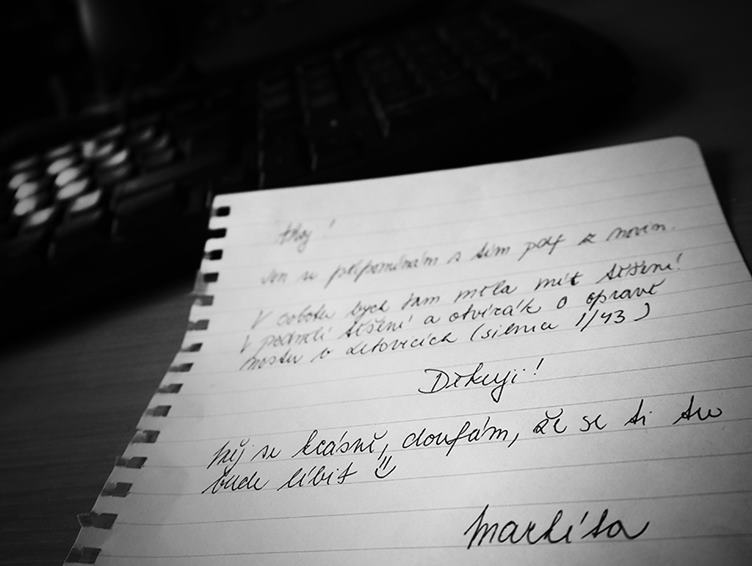 Ahoj!
Jen se připomínám s tím pdf z novin.
V sobotu bych tam měla mít těšení!
V pondělí těšení a otvírák o opravě
mostu v Letovicích (silnice I/43)
Děkuji!
Měj se krásně, doufám, že se ti tu
bude líbit
Markéta